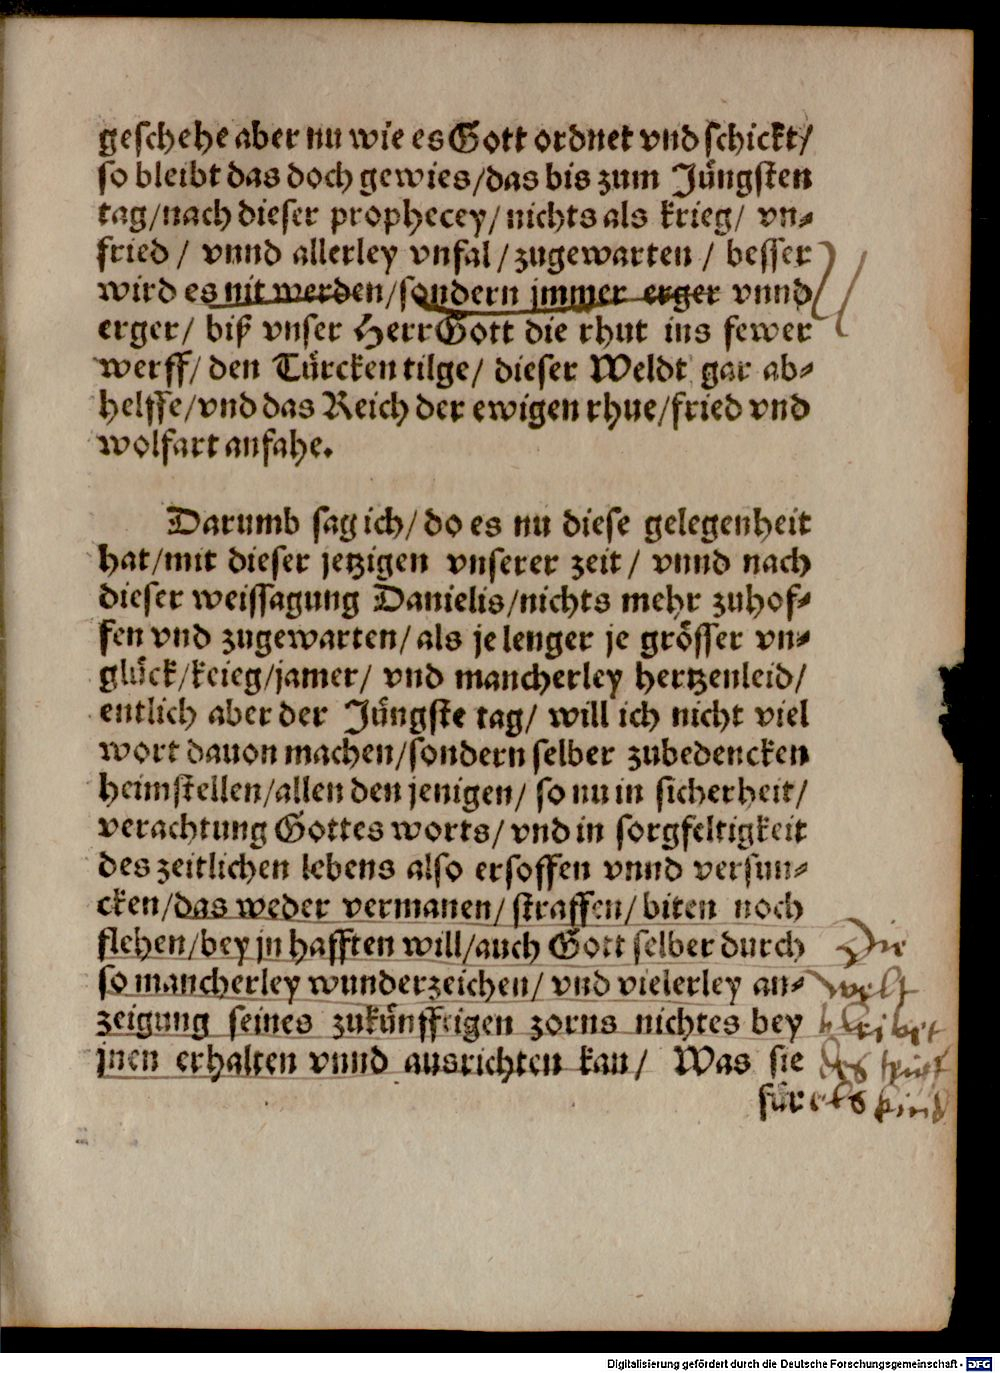 geschehe aber nu wie es Gott ordnet vnd schickt/
so bleibt das doch gewies/das bis zum Jüngsten
tag/nach dieser prophecey/nichts als krieg/ vn-
fried/ vnnd allerley vnfal/zugewarten/ besser
wird es nit werden/sondern jmmer erger vnnd
erger/ biß vnser HerrGott die rhut ins fewer
werff/ den Türcken tilge/ dieser Weldt gar ab-
helffe/vnd das Reich der ewigen rhue/fried vnd
wolfart anfahe.
Darumb sag ich/do es nu diese gelegenheit
hat/mit dieser jetzigen vnserer zeit/ vnnd nach
dieser weissagung Danielis/nichts mehr zuhof-
fen vnd zugewarten/als je lenger je grösser vn-
glück/keieg/jamer/ vnd mancherley hertzenleid/
entlich aber der Jüngste tag/ will ich nicht viel
wort dauon machen/sondern selber zubedencken
heimstellen/allen den jenigen/ so nu in sicherheit/
verachtung Gottes worts/ vnd in sorgfeltigkeit
des zeitlichen lebens also ersoffen vnnd versun-
cken/das weder vermanen/straffen/biten noch
flehen/bey jn hafften will/auch Gott selber durch
so mancherley wunderzeichen/ vnd vielerley an-
zeigung seines zukünfftigen zorns nichtes bey
jnen erhalten vnnd ausrichten kan/ Was sie
für
Die
welt
bleibet
des
kind
Digitalisierung gefördert durch die Deutsche Forschungsgemeinschaft - DFG